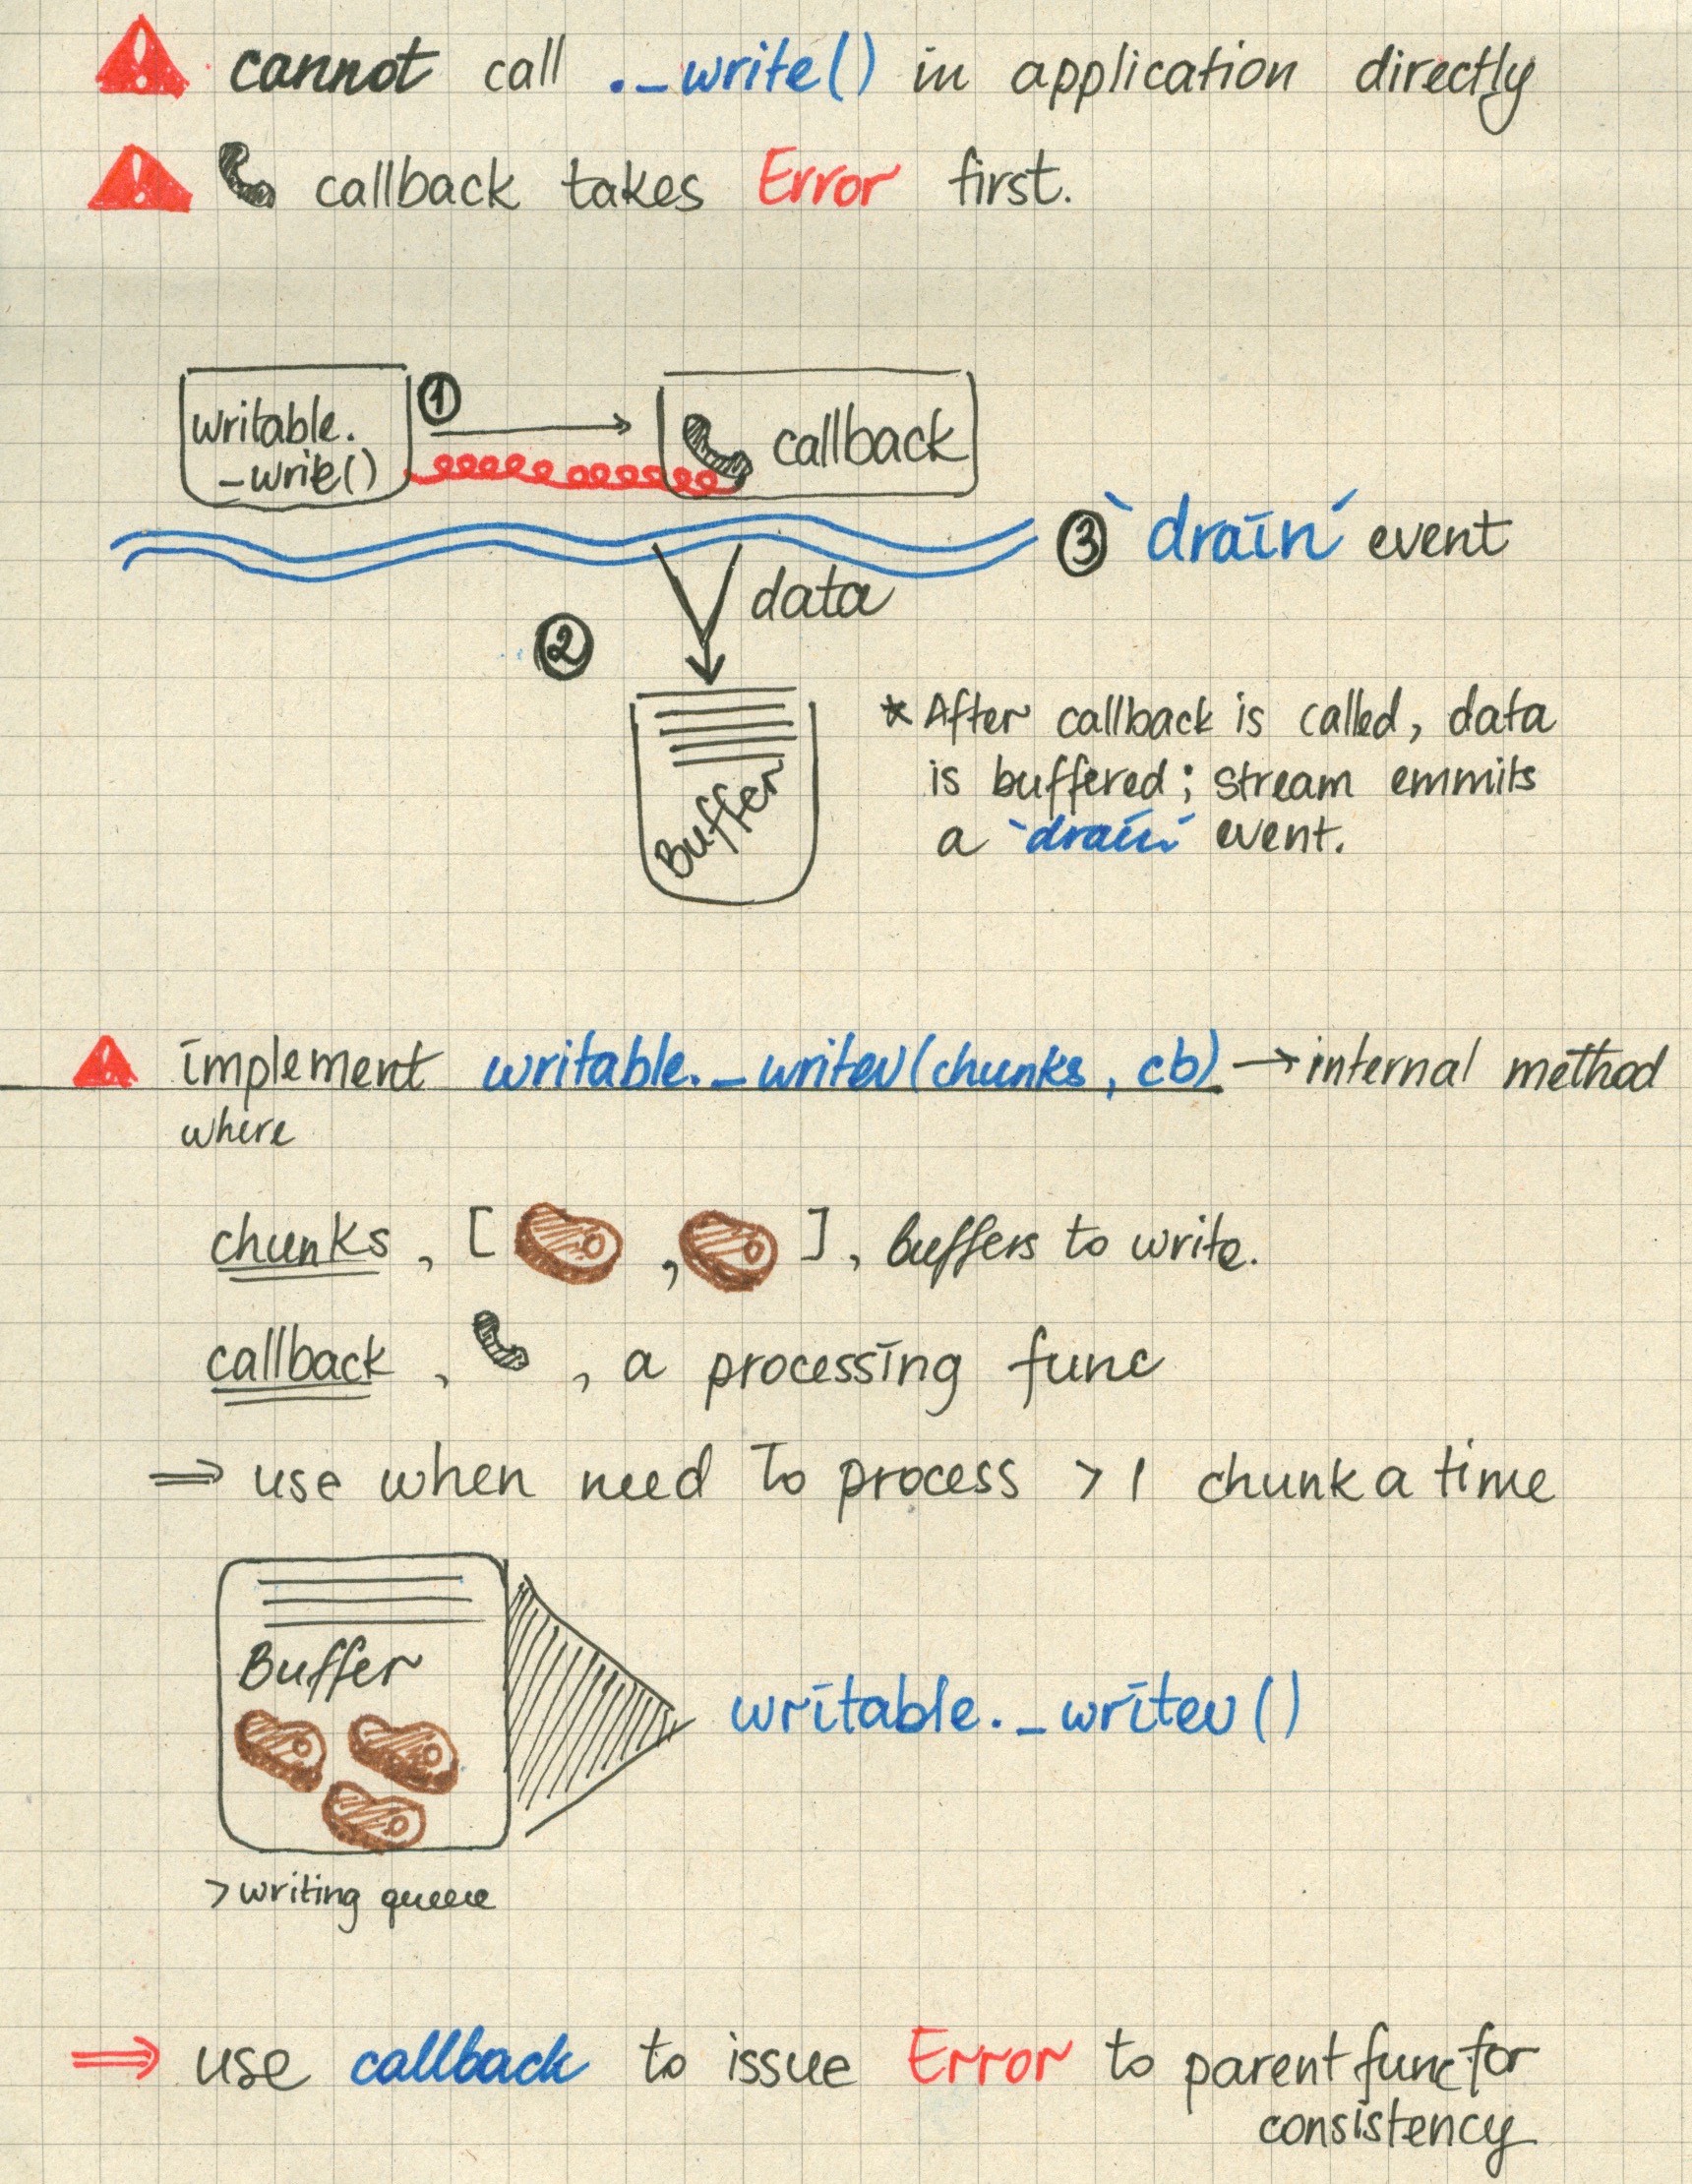 cannot call ._write() in application directly
callback takes Error first.
writable.
_write()
1
callback
3 `drain` event
data
2
Buffer
* After callback is called, data
is buffered; stream emmits
a `drain` event.
implement writable._writev(chunks, cb) → internal method
where
chunks, [ , ], buffers to write.
callback, , a processing func
⇒ use when need to process > 1 chunk a time
Buffer
writable._writev()
> writing queue
⇒ use callback to issue Error to parent func for
consistency